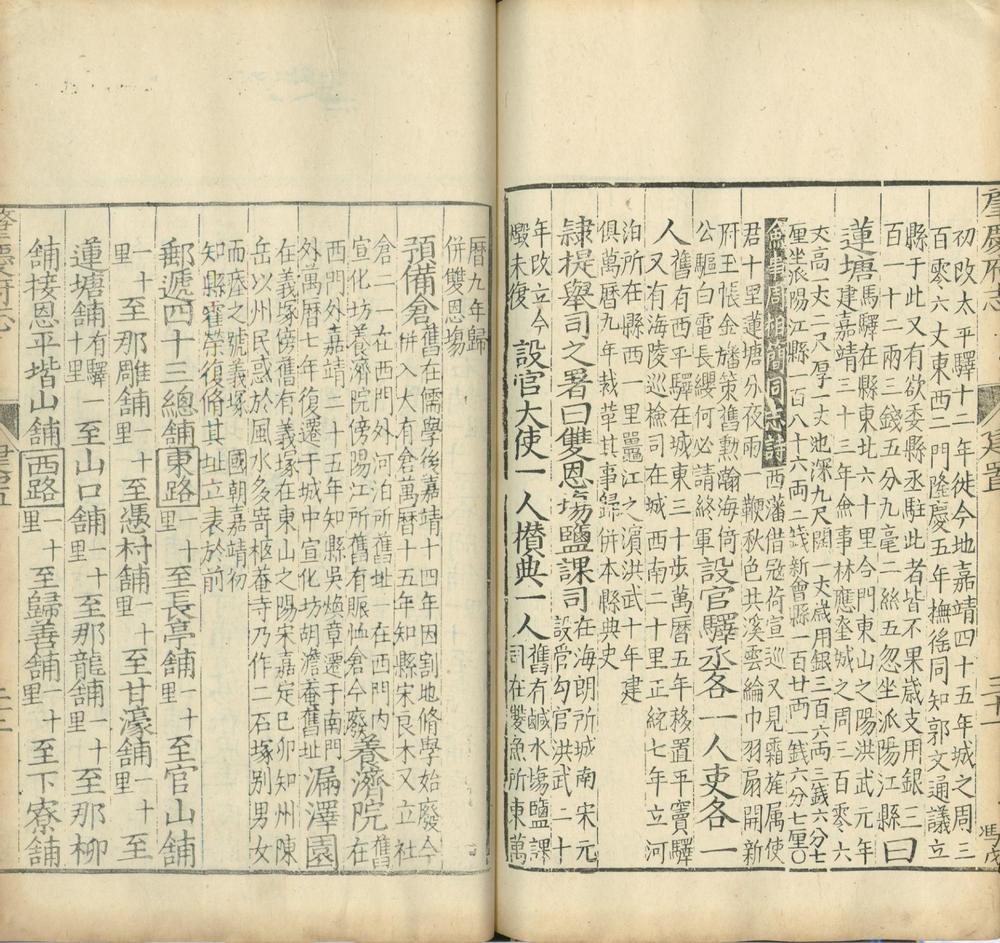 肇慶府志
初改太平驛十二年徙今地嘉靖四十五年城之周三
百零六丈東西二門隆慶五年撫徭同知郭文通議立
縣于此又有欲委縣丞駐此者皆不果歲支用銀三
百一十二兩三錢五分九毫二絲五忽坐派陽江縣曰
蓮塘馬驛在縣東北六十里今門東山之陽洪武元年
建嘉靖三十三年僉事林應奎城之周三百零六
丈高丈二尺厚一丈池深九尺闊一丈歲用銀三百六兩三錢六分七
厘坐派陽江縣一百八十六兩二錢新會縣一百廿兩一錢六分七厘〇
僉事周相簡同志詩西藩借寇荷宣巡又見霜旌属使
君十里蓮塘分夜雨一鞭秋色共溪雲綸巾羽扇開新
府玉帳金旛策舊勲瀚海倚
公驅白電長纓何必請終軍設官驛丞各一人吏各一
人舊有西平驛在城東三十步萬曆五年移置平竇驛
又有海陵巡檢司在城西南二十里正統七年立河
泊所在縣西一里鼉江之濵洪武十年建
俱萬曆九年裁革其事歸併本縣典史
隸提舉司之署曰雙恩塲鹽課司在海朗所城南宋元
設管勾官洪武二十
年改立今
燬未復設官大使一人攅典一人舊有鹹水塲鹽課
司在雙魚所東萬
曆九年歸
併雙恩塲
預備倉舊在儒學後嘉靖十四年因割地修學始廢今
併入大有倉萬曆十五年知縣宋良木又立社
倉二一在西門外河泊所舊址一在西門内
宣化坊養濟院傍陽江所舊有賑恤倉今廢養濟院舊在
西門外嘉靖三十五年知縣吳煥章遷于南門
外萬曆七年復遷于城中宣化坊胡澹菴舊址漏澤園
在義塚傍舊有義塚在東山之陽宋嘉定巳卯知州陳
岳以州民惑於風水多寄柩菴寺乃作二石塚别男女
而瘞之號義塚國朝嘉靖初
知縣甯榮復修其址立表於前
郵遞四十三總舖東路一十里至長亭舖一十里至官山舖
一十里至那雕舖一十里至愚村舖一十里至甘濠舖一十里至
蓮塘舖有驛一十里至山口舖一十里至那龍舖一十里至那柳
舖接恩平堦山舖西路一十里至歸善舖一十里至下寮舖
肇慶府志